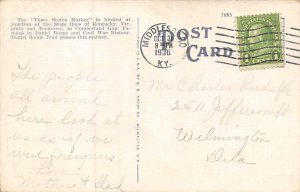 The "Three States Marker" is located at
junction of the State lines of Kentucky, Vir-
ginia and Tennessee, in Cumberland Gap. Fa-
mous in Daniel Boone and Civil War History.
Daniel Boone Trail passes this marker.
7695
POST
CARD
MIDDLES
OCT
PM
1936
KY.
The people
here look at
us as if we
were foreigners
Love
Mother & Dad
Mr Charles Rudolph
2511 Jefferson St
Wilmington
Dela